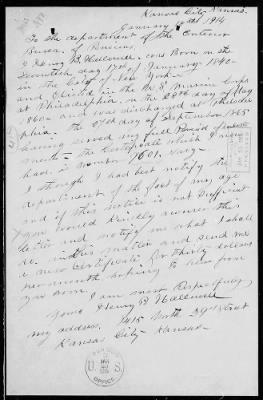 Kansas City Kansas.
January 19th 1914
To the department of the Interior
Bureau of Pensions
I Henry B. Hallowell was Born on the
Seventeth day 17 of January 1840-
in the City of New York-
and Enlisted in the U. S. Marine Corps
at Philadelphia on the 28th day of May
1860 and was discharged at Philadel
phia. the 27th day of September 1865
having served my full Period of
- the Certificate which I
had is number 1601. Navy-
I thought I had best notify the
department of the fact of my age
and if this notice is not Sufficient
you would kindly answer this
letter and notify me what I shall
do in this matter and send me
a new Certificate for thirty dollars
per month hoping to hear from
you Soon. I am most Respectfully
Yours Henry B Hallowell
my address. 1415 North 29th Street
Kansas City Kansas-
U S
OFFICE